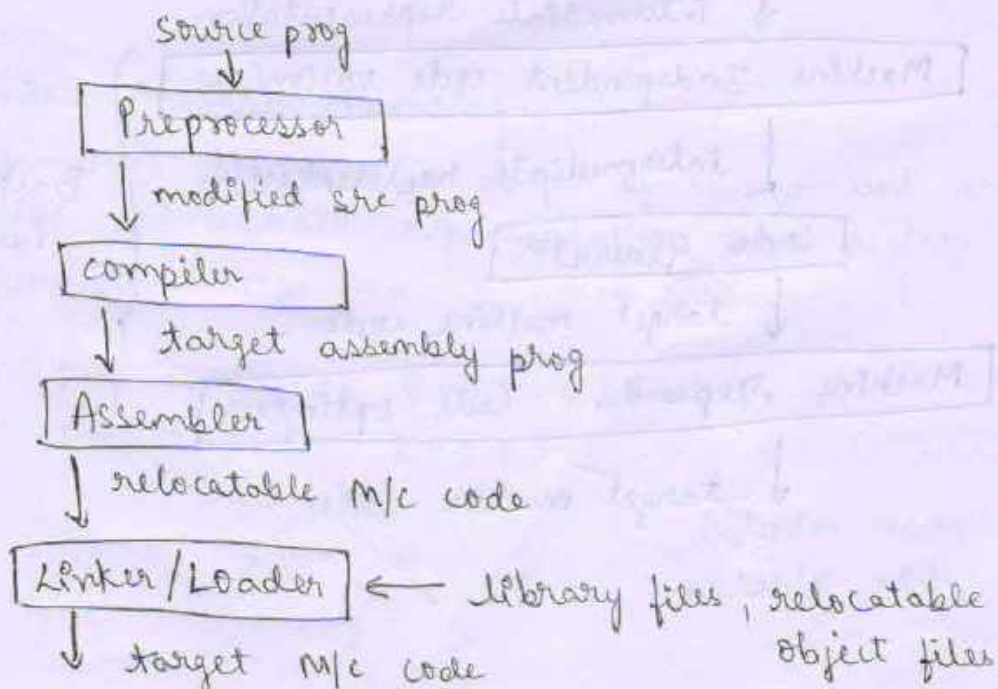 source prog
Preprocessor
modified src prog
compiler
target assembly prog
Assembler
relocatable M/c code
Linker/Loader
library files, relocatable
object files
target M/c code